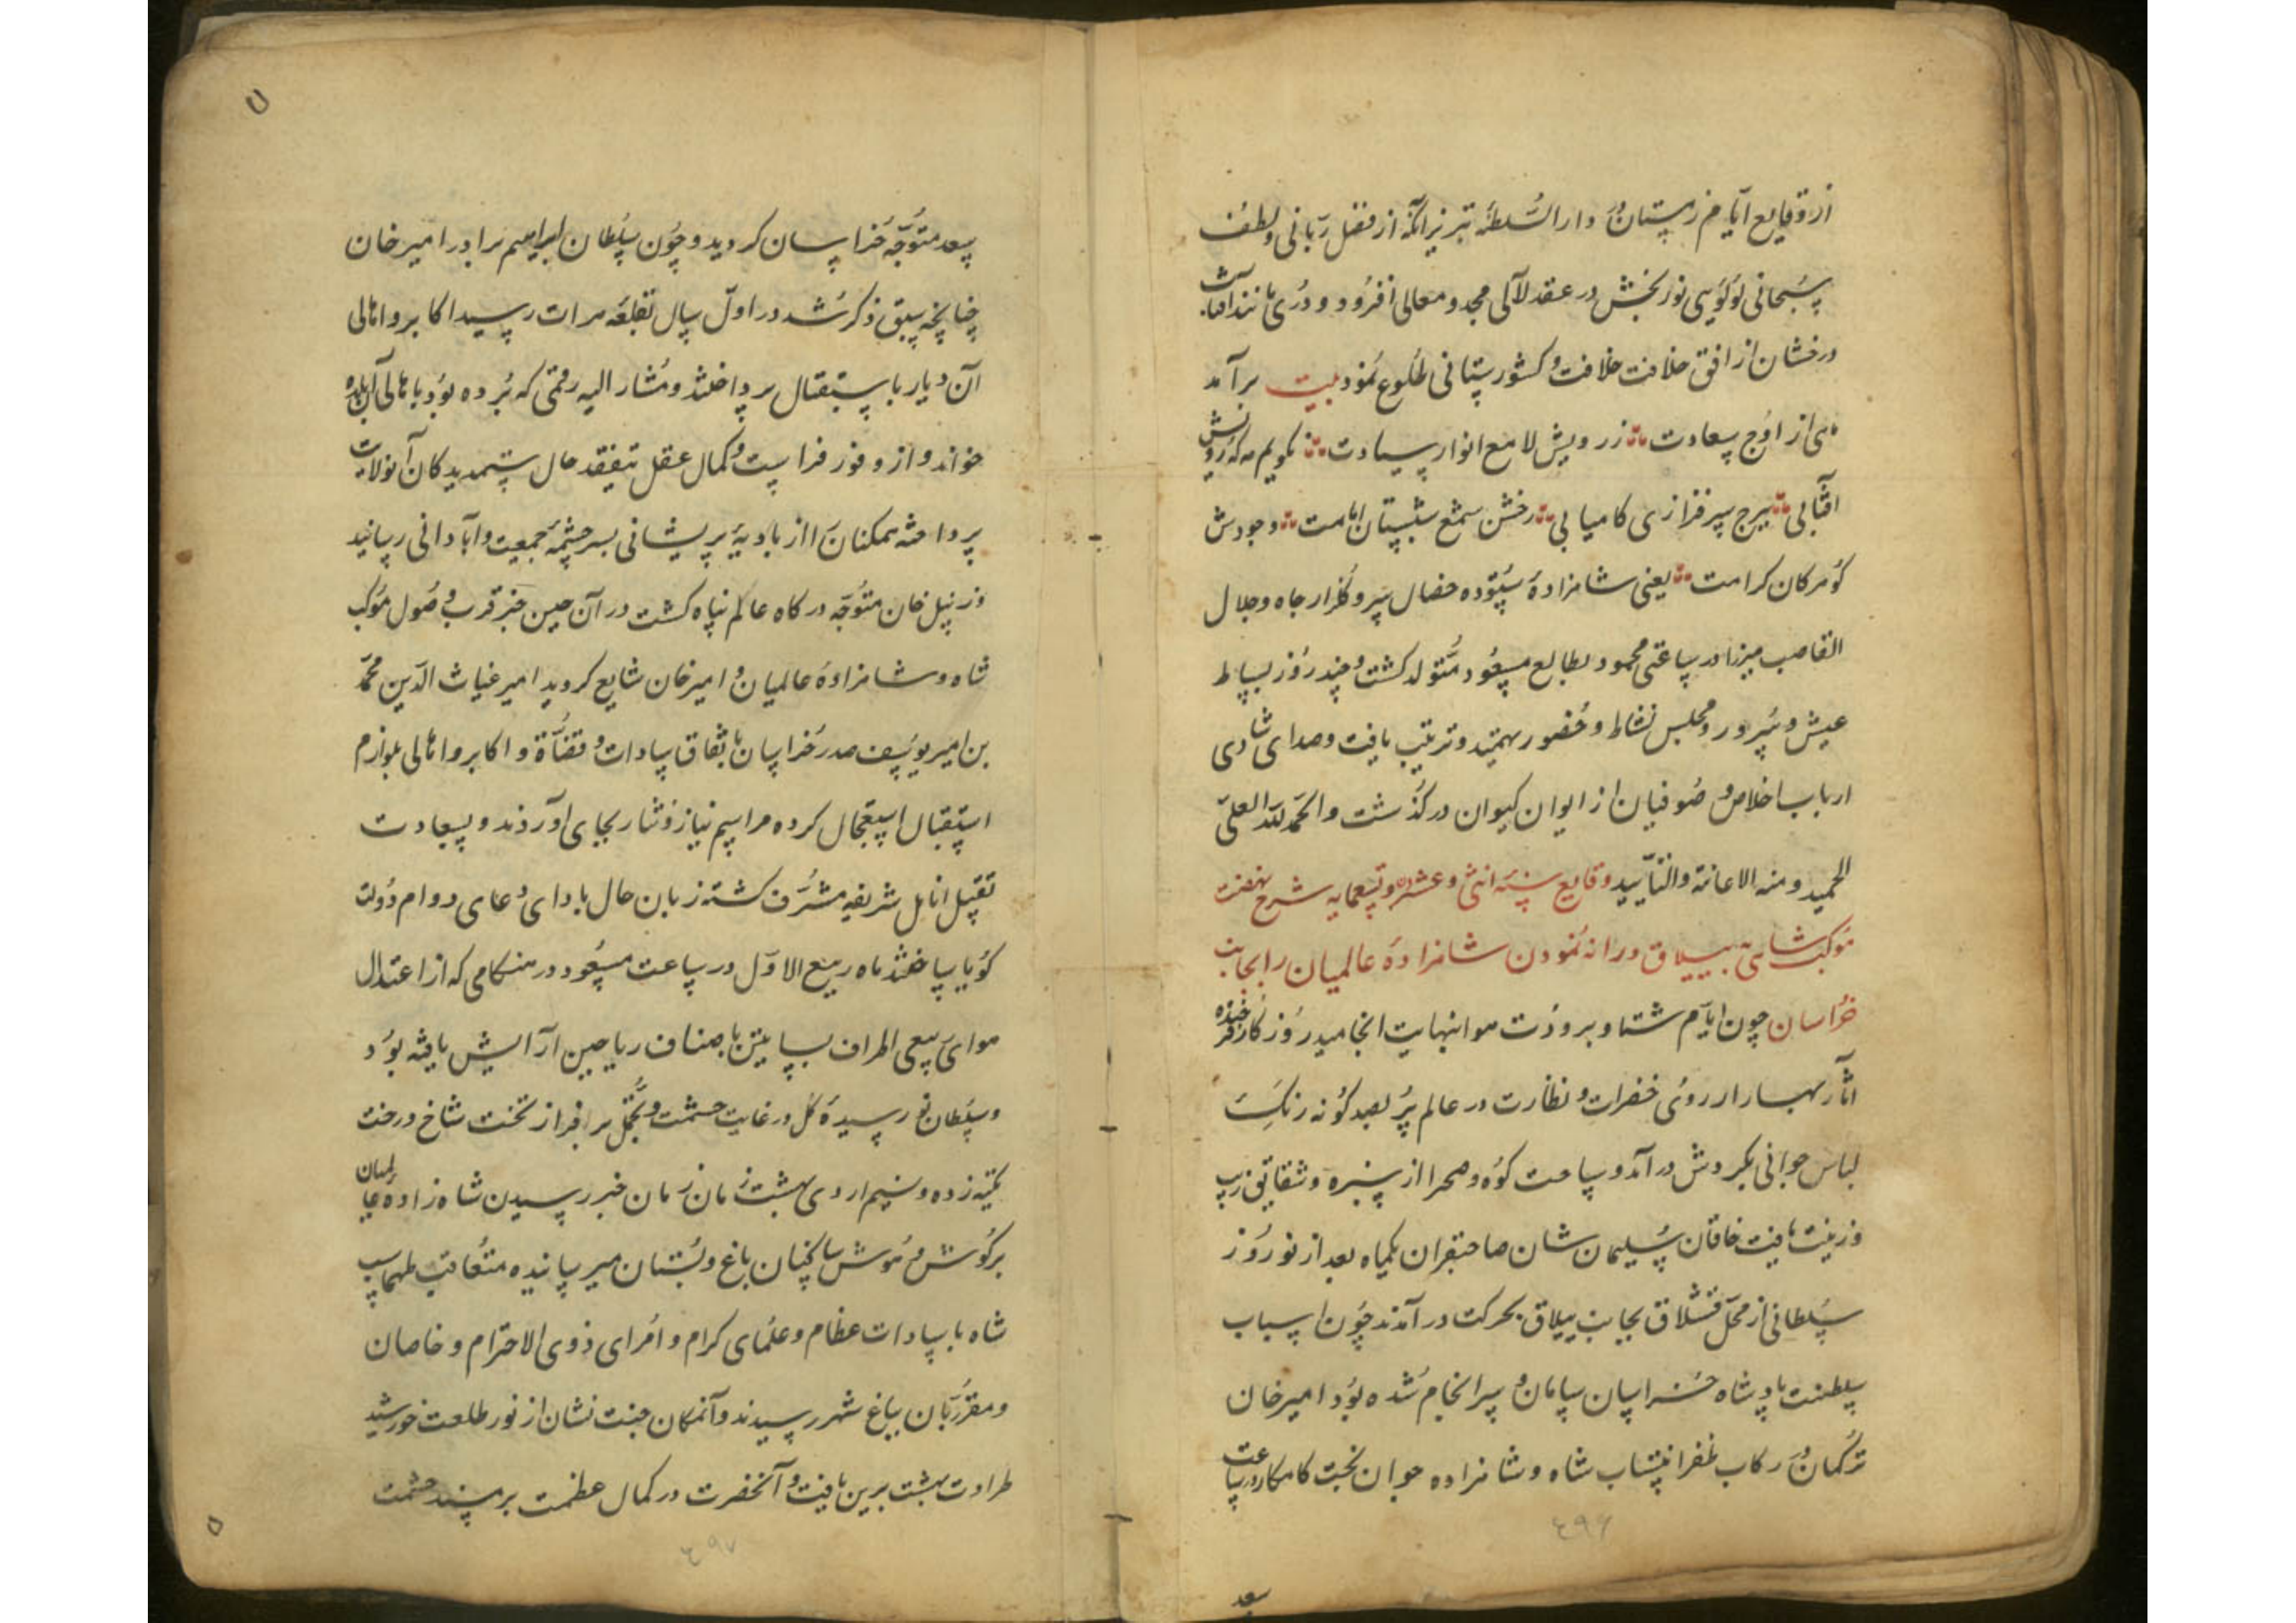 از وقایع ایام زمستان در دار السلطنه تبریز آنکه از فضل ربانی و لطف
سبحانی لؤلؤیی نوربخش در عقد لآلی مجد و معالی افزود و دری مانند آفتاب
درخشان از افق خلافت و کشورستانی طلوع نمود بیت برآمد
مهی از اوج سعادت ز رویش لامع انوار سیادت نگویم مه که رویش
آفتابی ببرج سرفرازی کامیابی رخش شمع شبستان امامت وجودش
گوهر کان کرامت یعنی شاهزادهٔ ستوده خصال سرو گلزار جاه و جلال
القاصب میرزا در ساعتی محمود بطالع مسعود متولد گشت و چند روز بساط
عیش و سرور و مجلس نشاط و حضور تمهید و ترتیب یافت و صدای شادی
ارباب اخلاص و صوفیان از ایوان کیوان درگذشت و الحمد لله العلی
الحمید و منه الاعانة و التأیید وقایع سنه اثنی و عشرین و تسعمایه شرح نهضت
موکب شاهی بییلاق و روانه نمودن شاهزادهٔ عالمیان را بجانب
خراسان چون ایام شتا و برودت هوا بنهایت انجامید روزگار فرخنده
آثار بهار از روی خضرات و نظارت در عالم پر بصد گونه رنگ
لباس جوانی بکردش درآمد و ساحت کوه و صحرا از سبزه و شقایق زیب
و زینت یافت خاقان سلیمان شان صاحبقران یکماه بعد از نوروز
سلطانی از محل قشلاق بجانب ییلاق بحرکت درآمدند چون اسباب
سلطنت پادشاه خراسان سامان و سرانجام شده بود امیرخان
ترکمان در رکاب ظفر انتساب شاه و شاهزاده جوان بخت کامکار در ساعت
سعد
سعد متوجه خراسان گردید و چون سلطان ابراهیم برادر امیر خان
چنانچه سبق ذکر شد در اول سال بقلعه هرات رسید اکابر و اهالی
آن دیار باستقبال پرداختند و مشار الیه رقمی که برده بود باهالی آن بلده
خواند و از وفور فراست و کمال عقل بتفقد حال ستمدیدگان آنولایت
پرداخته همکنانرا از بادیهٔ پریشانی بسرچشمهٔ جمعیت و آبادانی رسانید
و زینل خان متوجه درگاه عالم پناه گشت در آن حین خبر قرب وصول موکب
شاه و شاهزادهٔ عالمیان و امیرخان شایع گردید امیر غیاث الدین محمد
بن امیر یوسف صدر خراسان باتفاق سادات و قضاة و اکابر و اهالی بلوازم
استقبال استعجال کرده مراسم نیاز و نثار بجای آوردند و بسعادت
تقبیل انامل شریفه مشرف گشته زبان حال بادای دعای دوام دولت
گویا ساختند ماه ربیع الاول در ساعت مسعود در هنگامی که از اعتدال
هوای ربیعی اطراف بساتین باصناف ریاحین آرایش یافته بود
و سلطان نو رسیدهٔ گل در غایت حشمت و تجمل بر افراز تخت شاخ درخت
تکیه زده و نسیم اردی بهشت زمان زمان خبر رسیدن شاه زادهٔ عالمیان
بر گوش و هوش ساکنان باغ و بستان میرسانیده متعاقب طهماسب
شاه با سادات عظام و علمای کرام و امرای ذوی الاحترام و خاصان
و مقربان بباغ شهر رسیدند و آنمکان جنت نشان از نور طلعت خورشید
طراوت بهشت برین یافت و آنحضرت در کمال عظمت بر مسند حشمت
٤٩۶
٤٩٧